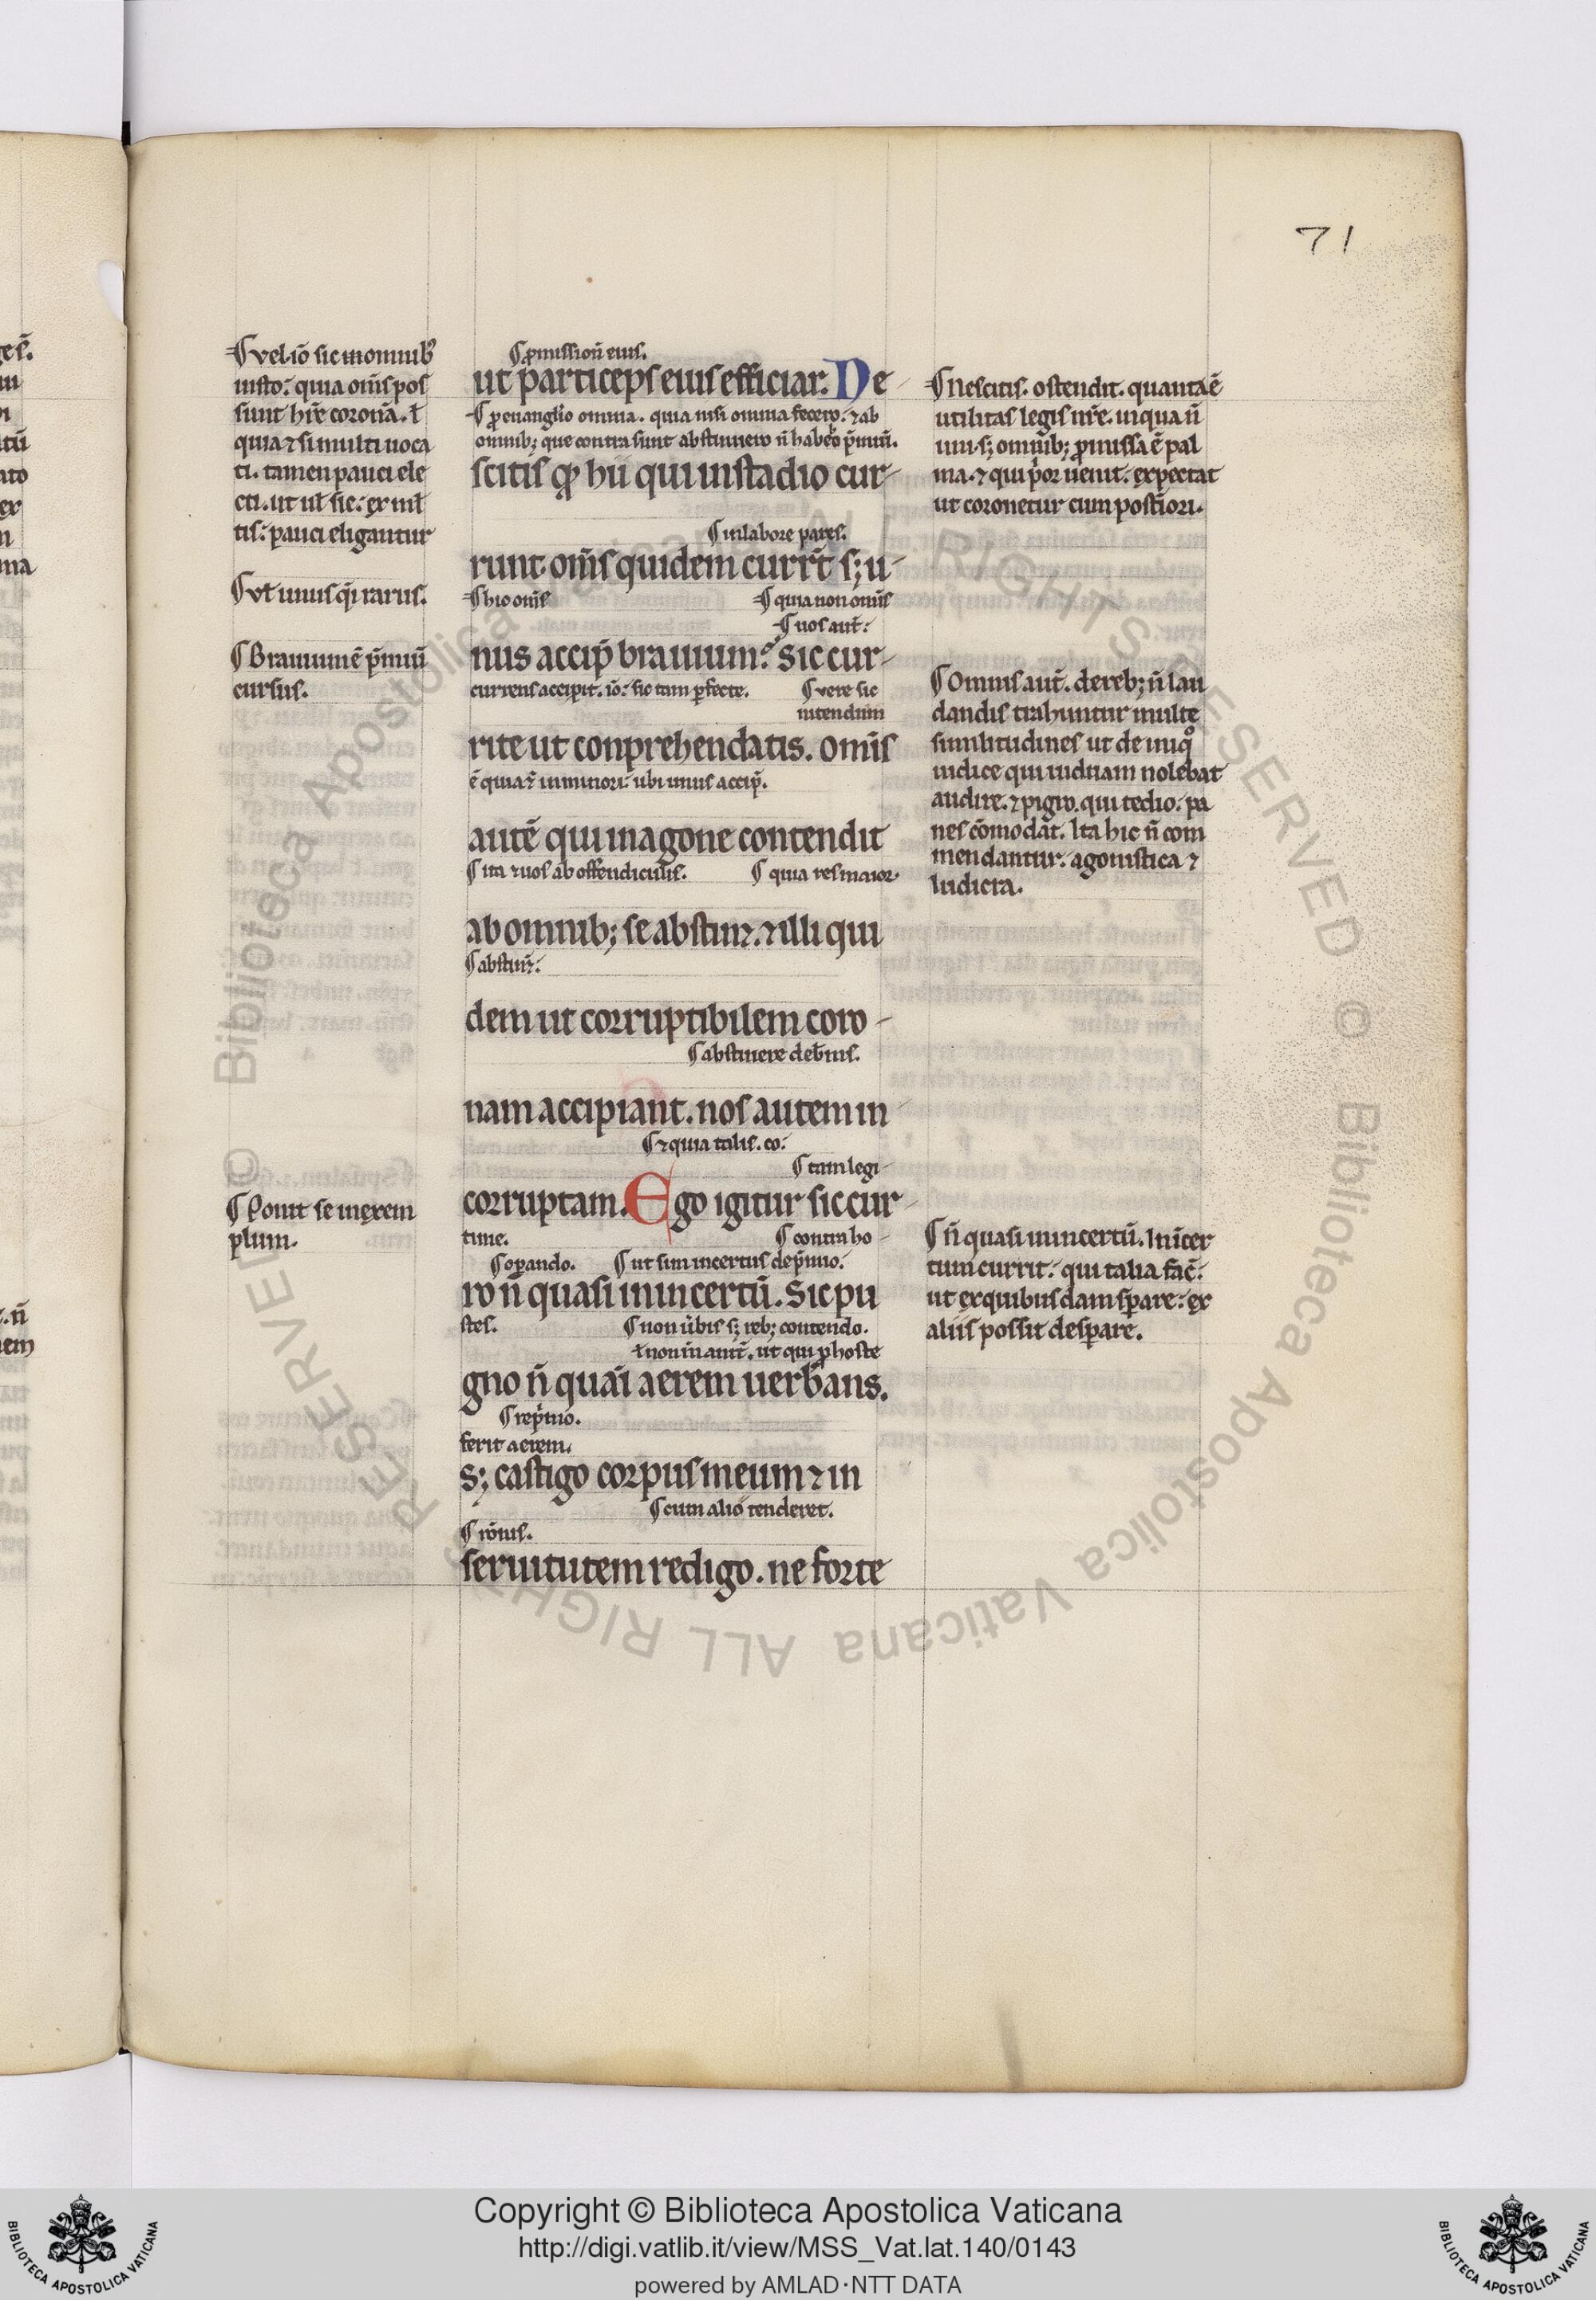 71
¶ vel. iō sic in omnibꝰ
iusto: quia om̄s pos
sunt hr̄e coronā. ł
quia ⁊ si multi uoca
ti. tamen pauci ele
cti. ut ul̄ sic: ex ml̄
tis: pauci eligantur
¶ vł unus qͥ rarus.
¶ Brauium ē p̄miū
cursus.
¶ Ponit se in exem
plum.
¶ ꝓmissionū eius.
ut particeps eius efficiar. Ne
¶ ꝓ euanglio omnia. quia nisi omnia fecero. ⁊ ab
omnibꝫ que contra sunt abstinuero n̄ habeo p̄miū.
scitis qđ hii qui in stadio cur
¶ in labore pares.
runt om̄s quidem curr̄t sꝫ u
¶ hio om̄s
¶ quia non om̄s
¶ uos aut̄:
nus accip̄ brauium. Sic cur
currens accipit. iō: sic tam ꝑfecte.
¶ vere sic
intendum
rite ut conprehendatis. Om̄is
ē quia ⁊ in minori: ubi unus accip̄.
autē qui in agone contendit
¶ ita ⁊ uos ab offendiculis.
¶ quia res maior.
ab omnibꝫ se abstinꝫ. ⁊ illi qui
¶ abstinꝫ:
dem ut corruptibilem coro
¶ abstinere deb̄mus.
nam accipiant. nos autem in
¶ ⁊ quia talis. co:
¶ tam legi
corruptam. Ego igitur sic cur
time.
¶ contra ho
¶ oꝑando.
¶ ut sim incertus de p̄mio.
ro n̄ quasi in incertū. Sic pu
stes.
¶ non ūbis sꝫ rebꝫ contendo.
ł non in anit̄. ut qui ꝓ hoste
gno n̄ quaı̄ aerem uerb̄ans.
¶ rep̄mo.
ferit aerem.
Sꝫ castigo corpus meum ⁊ in
¶ cum alio tenderet.
¶ rōnis.
seruitutem redigo. ne forte
¶ Nescitis. ostendit. quanta ē
utilitas legis nr̄e. in qua n̄
uni. sꝫ omnibꝫ ꝓmissa ē pal
ma. ⁊ qui p̄or uenit: expectat
ut coronetur cum post̄iori.
¶ Omnis aut̄. de rebꝫ n̄ lau
dandis trahuntur multę
similitudines ut de iniqͦ
iudice qui uiduam nolebat
audire. ⁊ pigro. qui tedio: pa
nes cōmodat̄. Ita hic n̄ com
mendantur: agonistica ⁊
ludicra.
¶ n̄ quasi in incertū. In īcer
tum currit: qui talia fac̄:
ut ex quibusdam sꝑare: ex
aliis possit desꝑare.
Copyright © Biblioteca Apostolica Vaticana
http://digi.vatlib.it/view/MSS_Vat.lat.140/0143
powered by AMLAD·NTT DATA
BIBLIOTECA APOSTOLICA VATICANA
BIBLIOTECA APOSTOLICA VATICANA
© Biblioteca Apostolica Vaticana ALL RIGHTS RESERVED
© Biblioteca Apostolica Vaticana ALL RIGHTS RESERVED